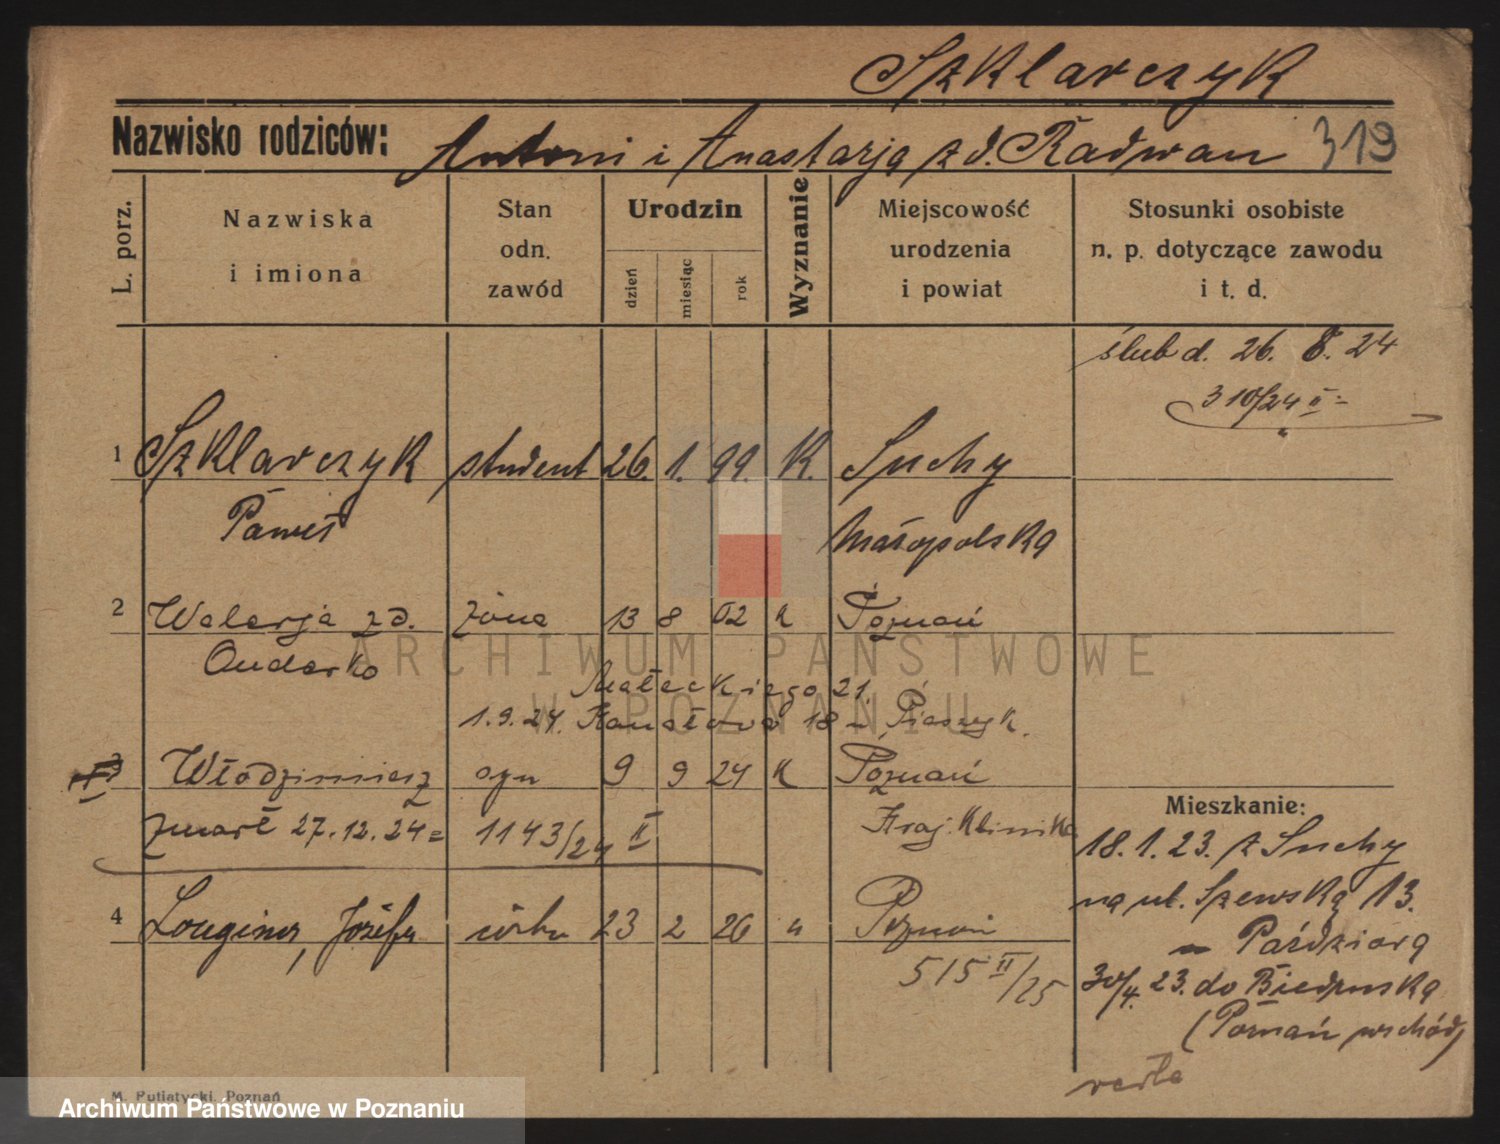 Szklarczyk
Nazwisko rodziców: Antoni i Anastazja z d. Radwan 319
L. porz.
Nazwiska
i imiona
Stan
odn.
zawód
Urodzin
dzień
miesiąc
rok
Wyznanie
Miejscowość
urodzenia
i powiat
Stosunki osobiste
n. p. dotyczące zawodu
i t. d.
ślub d. 26. 8. 24
310/24 II
1 Szklarczyk student 26. 1. 99. K. Suchy
Paweł Małopolska
2 Walerja z d. żona 13 8 02 k Poznań
Andarko
Małeckiego 21.
1.9.24. Kanałowa 18 Piaszyk.
3 Włodzimierz syn 9 9 24 k Poznań
Mieszkanie:
zmarł 27.12.24= 1143/24 II Kraj. Klinika
18.1.23. z Suchy
na ul. Szewską 13.
4 Longina, Józefa córka 23 2 26 " Poznań
Paździorą
515 II/25
30/4. 23. do Biedruska
(Poznań wschód)
M. Putiatycki, Poznań
ARCHIWUM PAŃSTWOWE
W POZNANIU
Archiwum Państwowe w Poznaniu